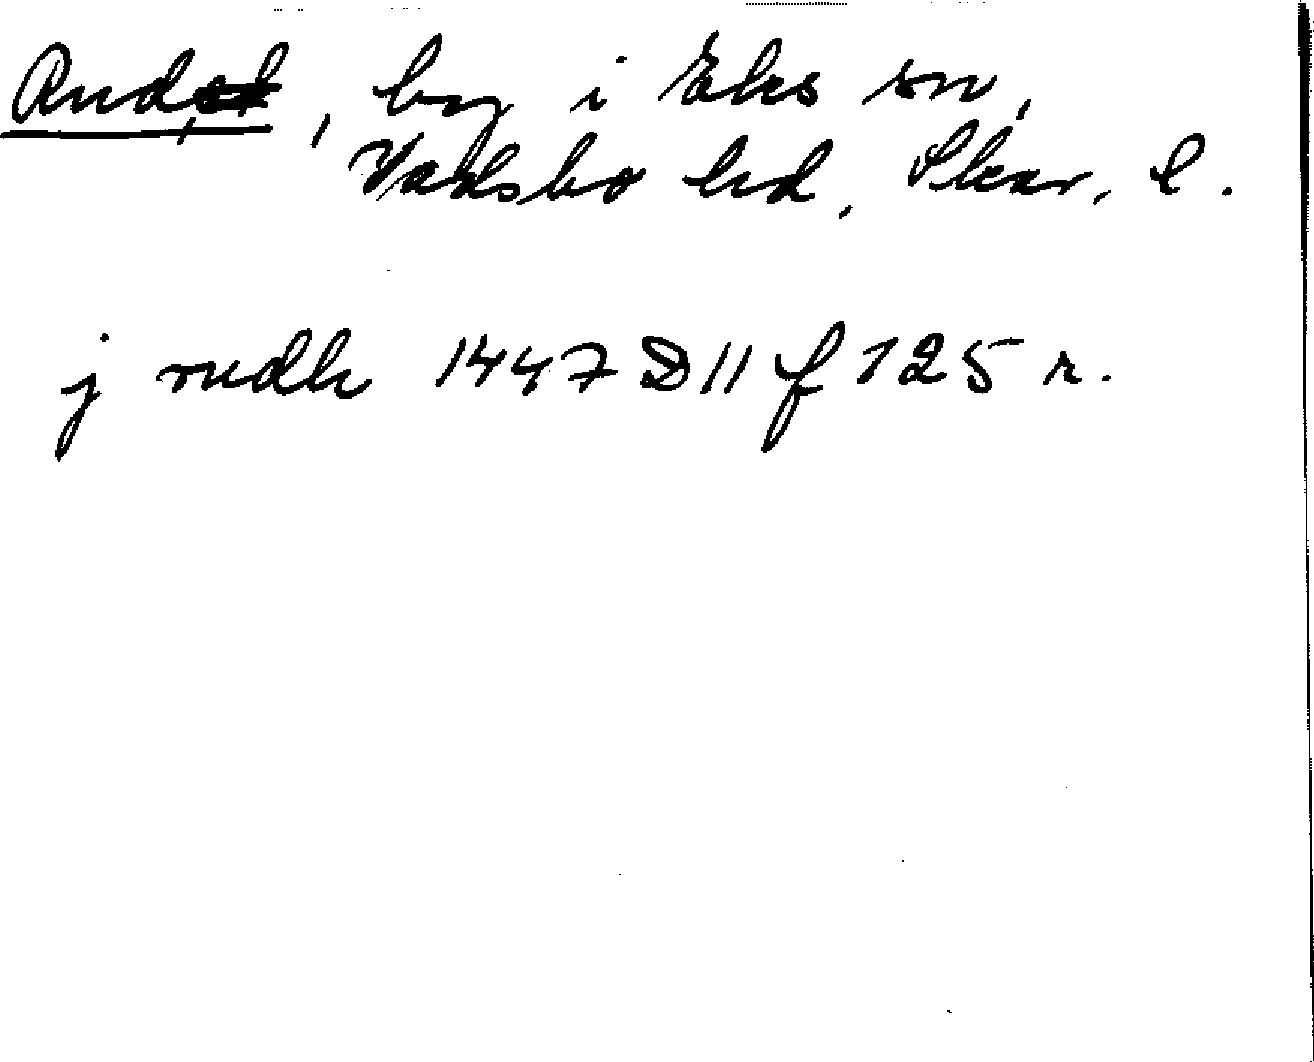 Rud, by i Eks sn,
Vadsbo hd, Skar. l.
j rudh 1447 D11 f 125 r.